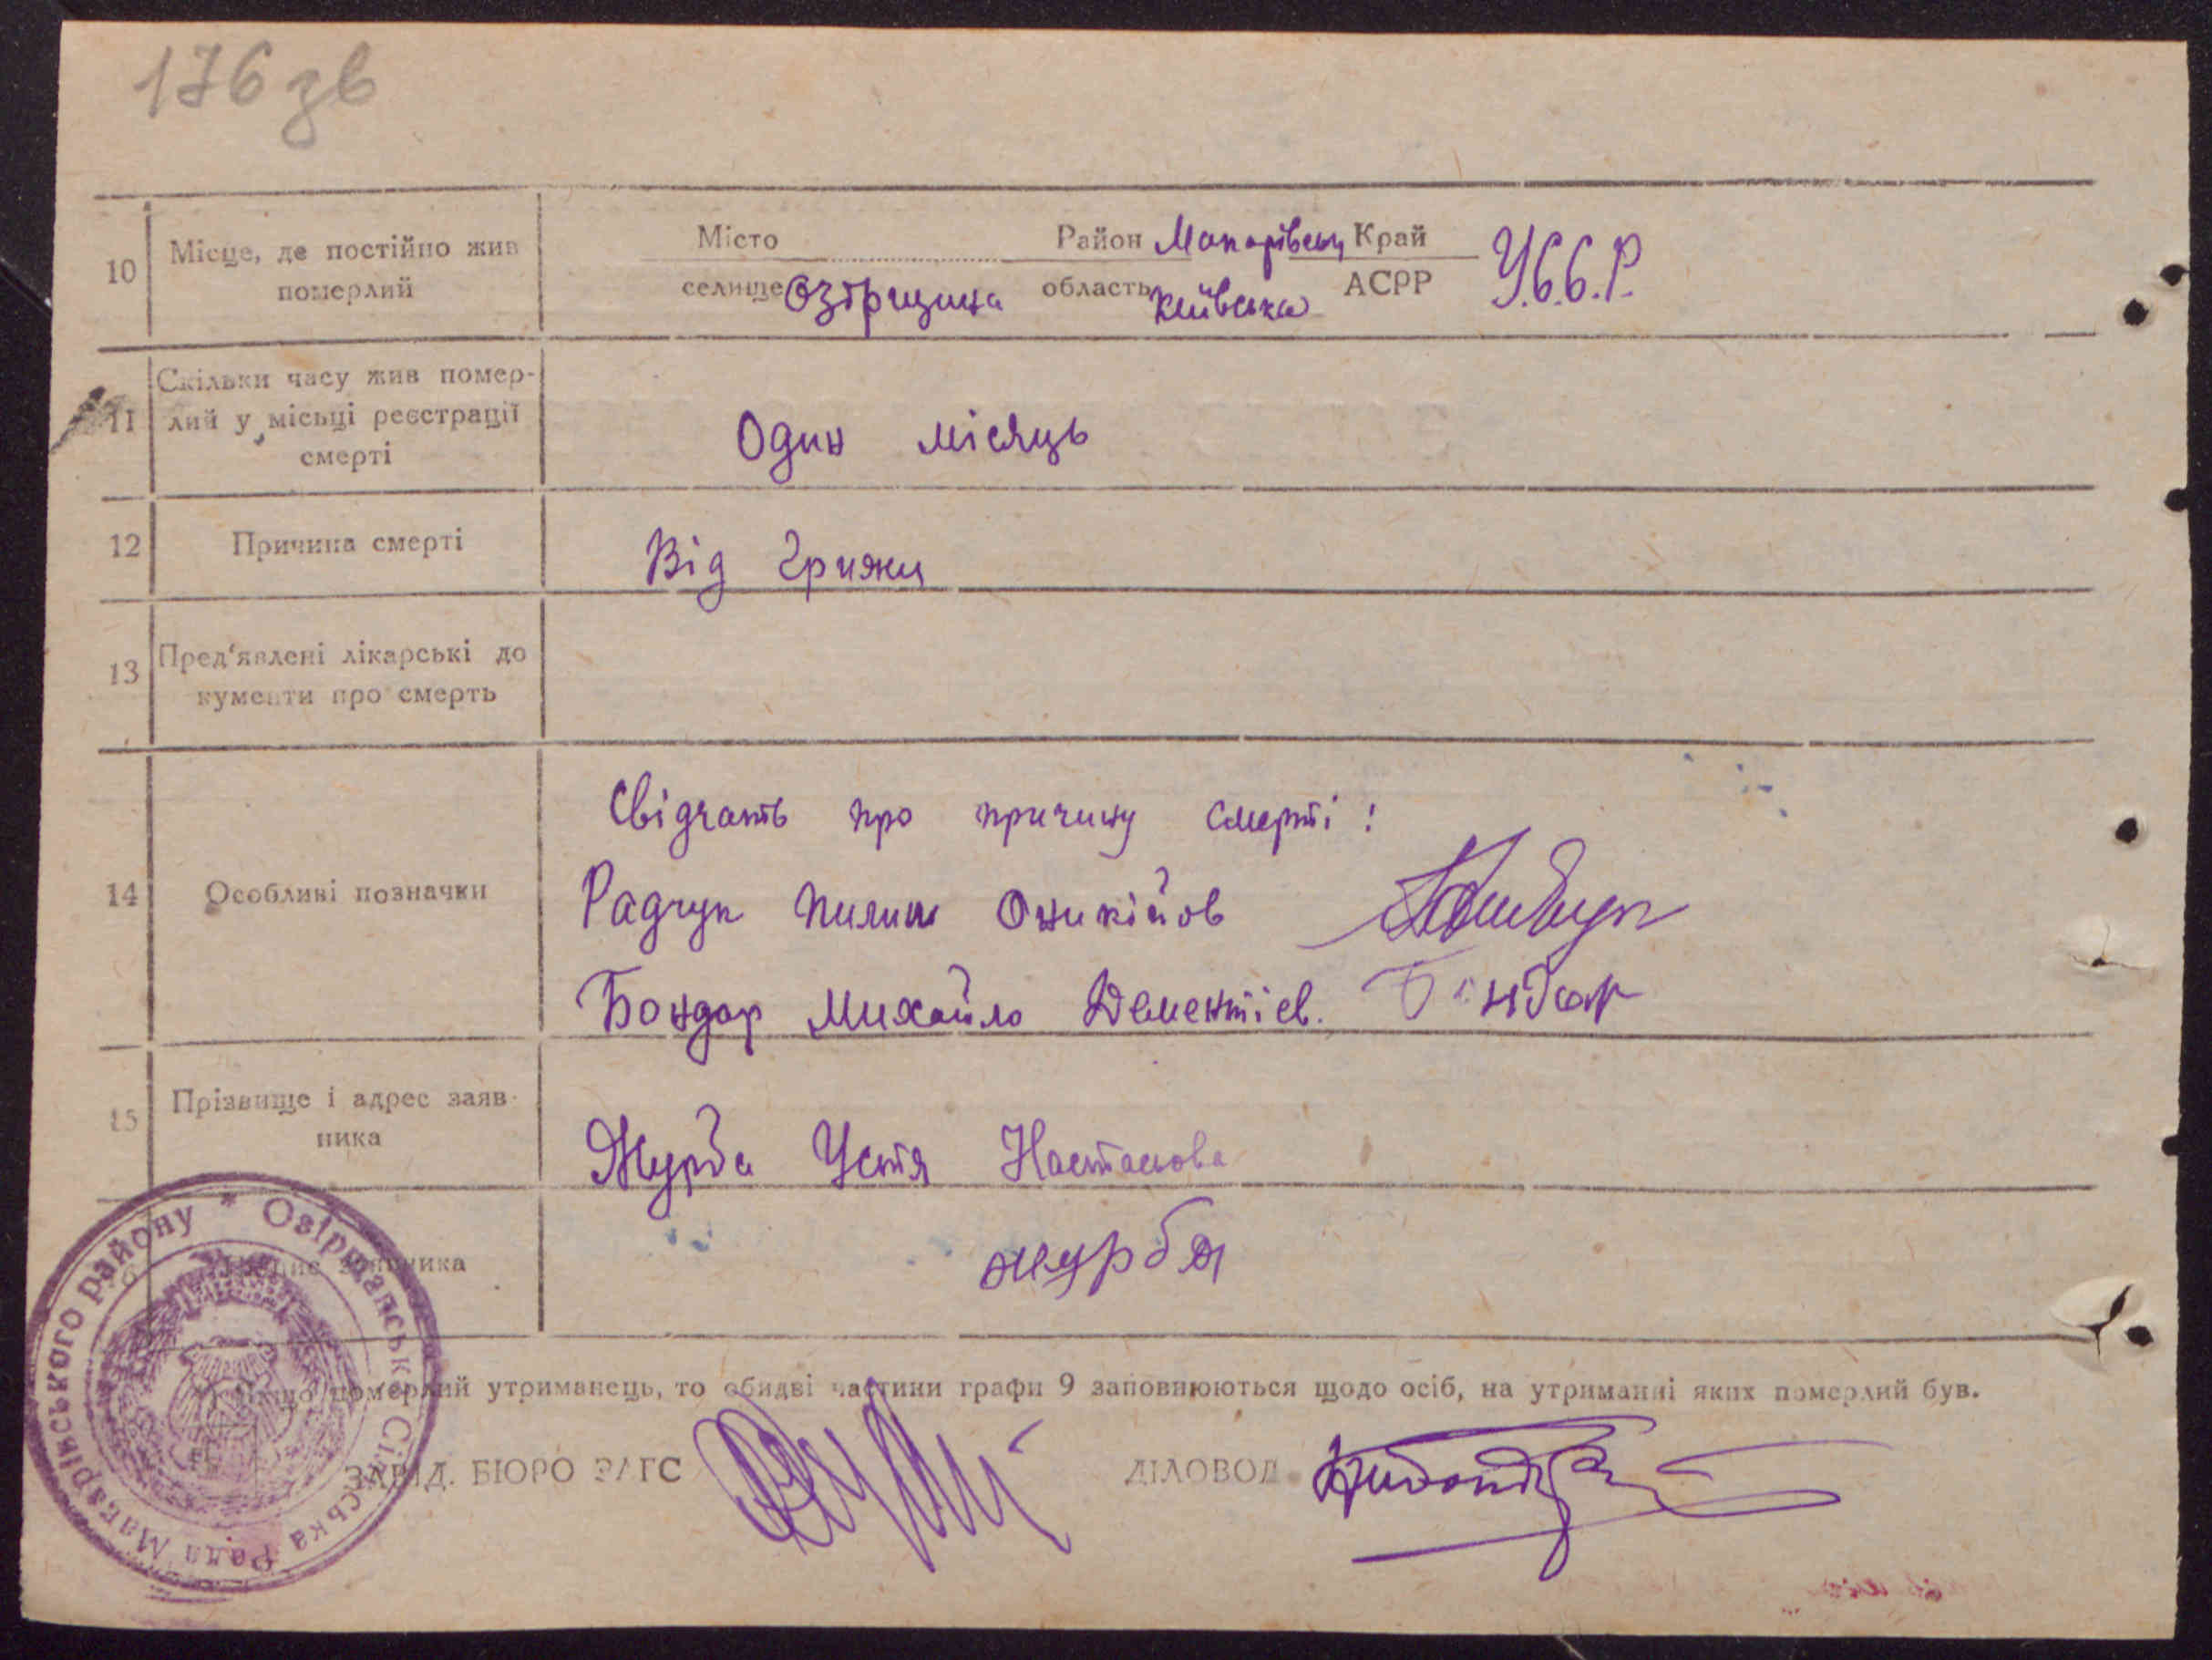 176 зв
10 Місце, де постійно жив померлий
Місто Район Макарівськ Край У.С.С.Р.
селище Озірщина область Київська АСРР
11 Скільки часу жив помер-
лий у місьці реєстрації
смерті
Один місяць
12 Причина смерті
Від грижи
13 Пред'явлені лікарські до
кументи про смерть
14 Особливі позначки
Свідчать про причину смерті:
Радчук Пилип Оникійов
Бондар Михайло Дементіев. Бондар
15 Прізвище і адрес заяв-
ника
Журба Устя Настасова
Підпис заявника
журба
Якщо померлий утриманець, то обидві частини графи 9 заповнюються щодо осіб, на утриманні яких померлий був.
ЗАВІД. БЮРО ЗАГС ДІЛОВОД
* Озірщанська Сільська Рада Макарівського району